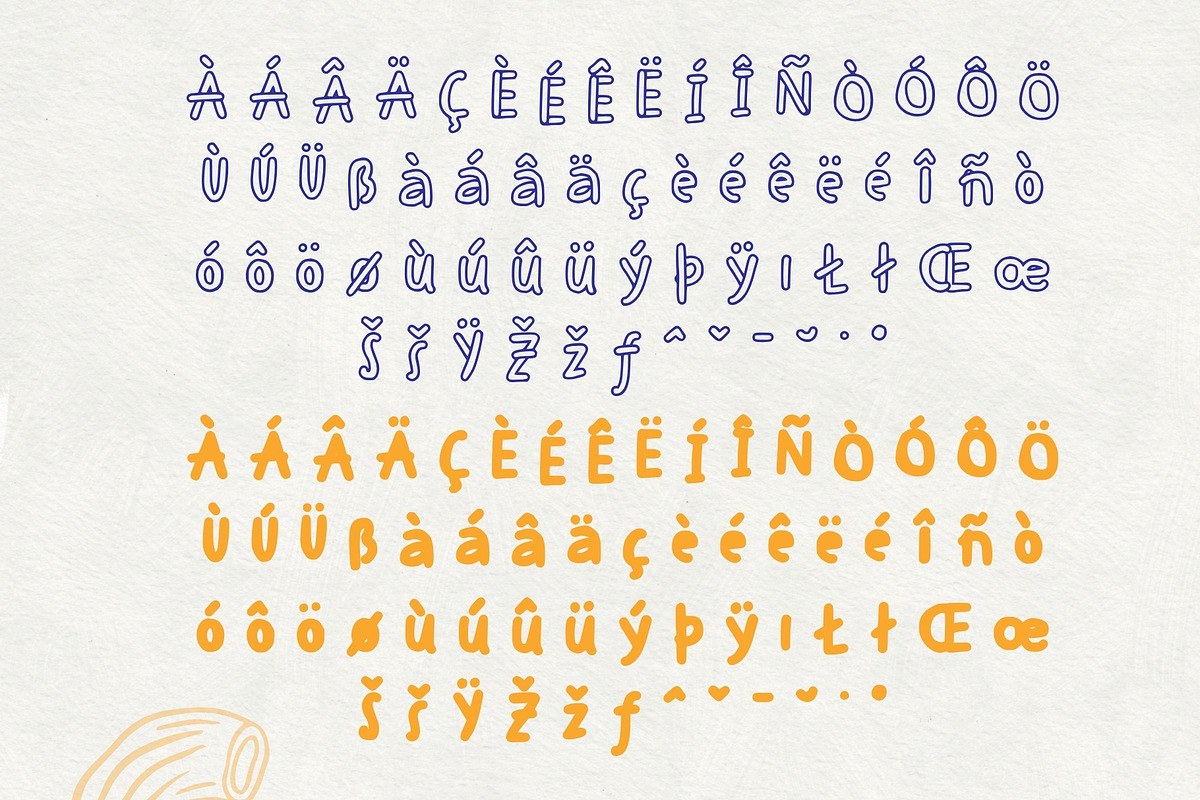 À Á Â Ä Ç È É Ê Ë Í Î Ñ Ò Ó Ô Ö
Ù Ú Ü ß à á â ä ç è é ê ë é î ñ ò
ó ô ö ø ù ú û ü ý þ ÿ ı Ł ł Œ œ
Š š Ÿ Ž ž ƒ ˆ ˇ ˉ ˘ ˙ ˚
À Á Â Ä Ç È É Ê Ë Í Î Ñ Ò Ó Ô Ö
Ù Ú Ü ß à á â ä ç è é ê ë é î ñ ò
ó ô ö ø ù ú û ü ý þ ÿ ı Ł ł Œ œ
Š š Ÿ Ž ž ƒ ˆ ˇ ˉ ˘ ˙ ˚